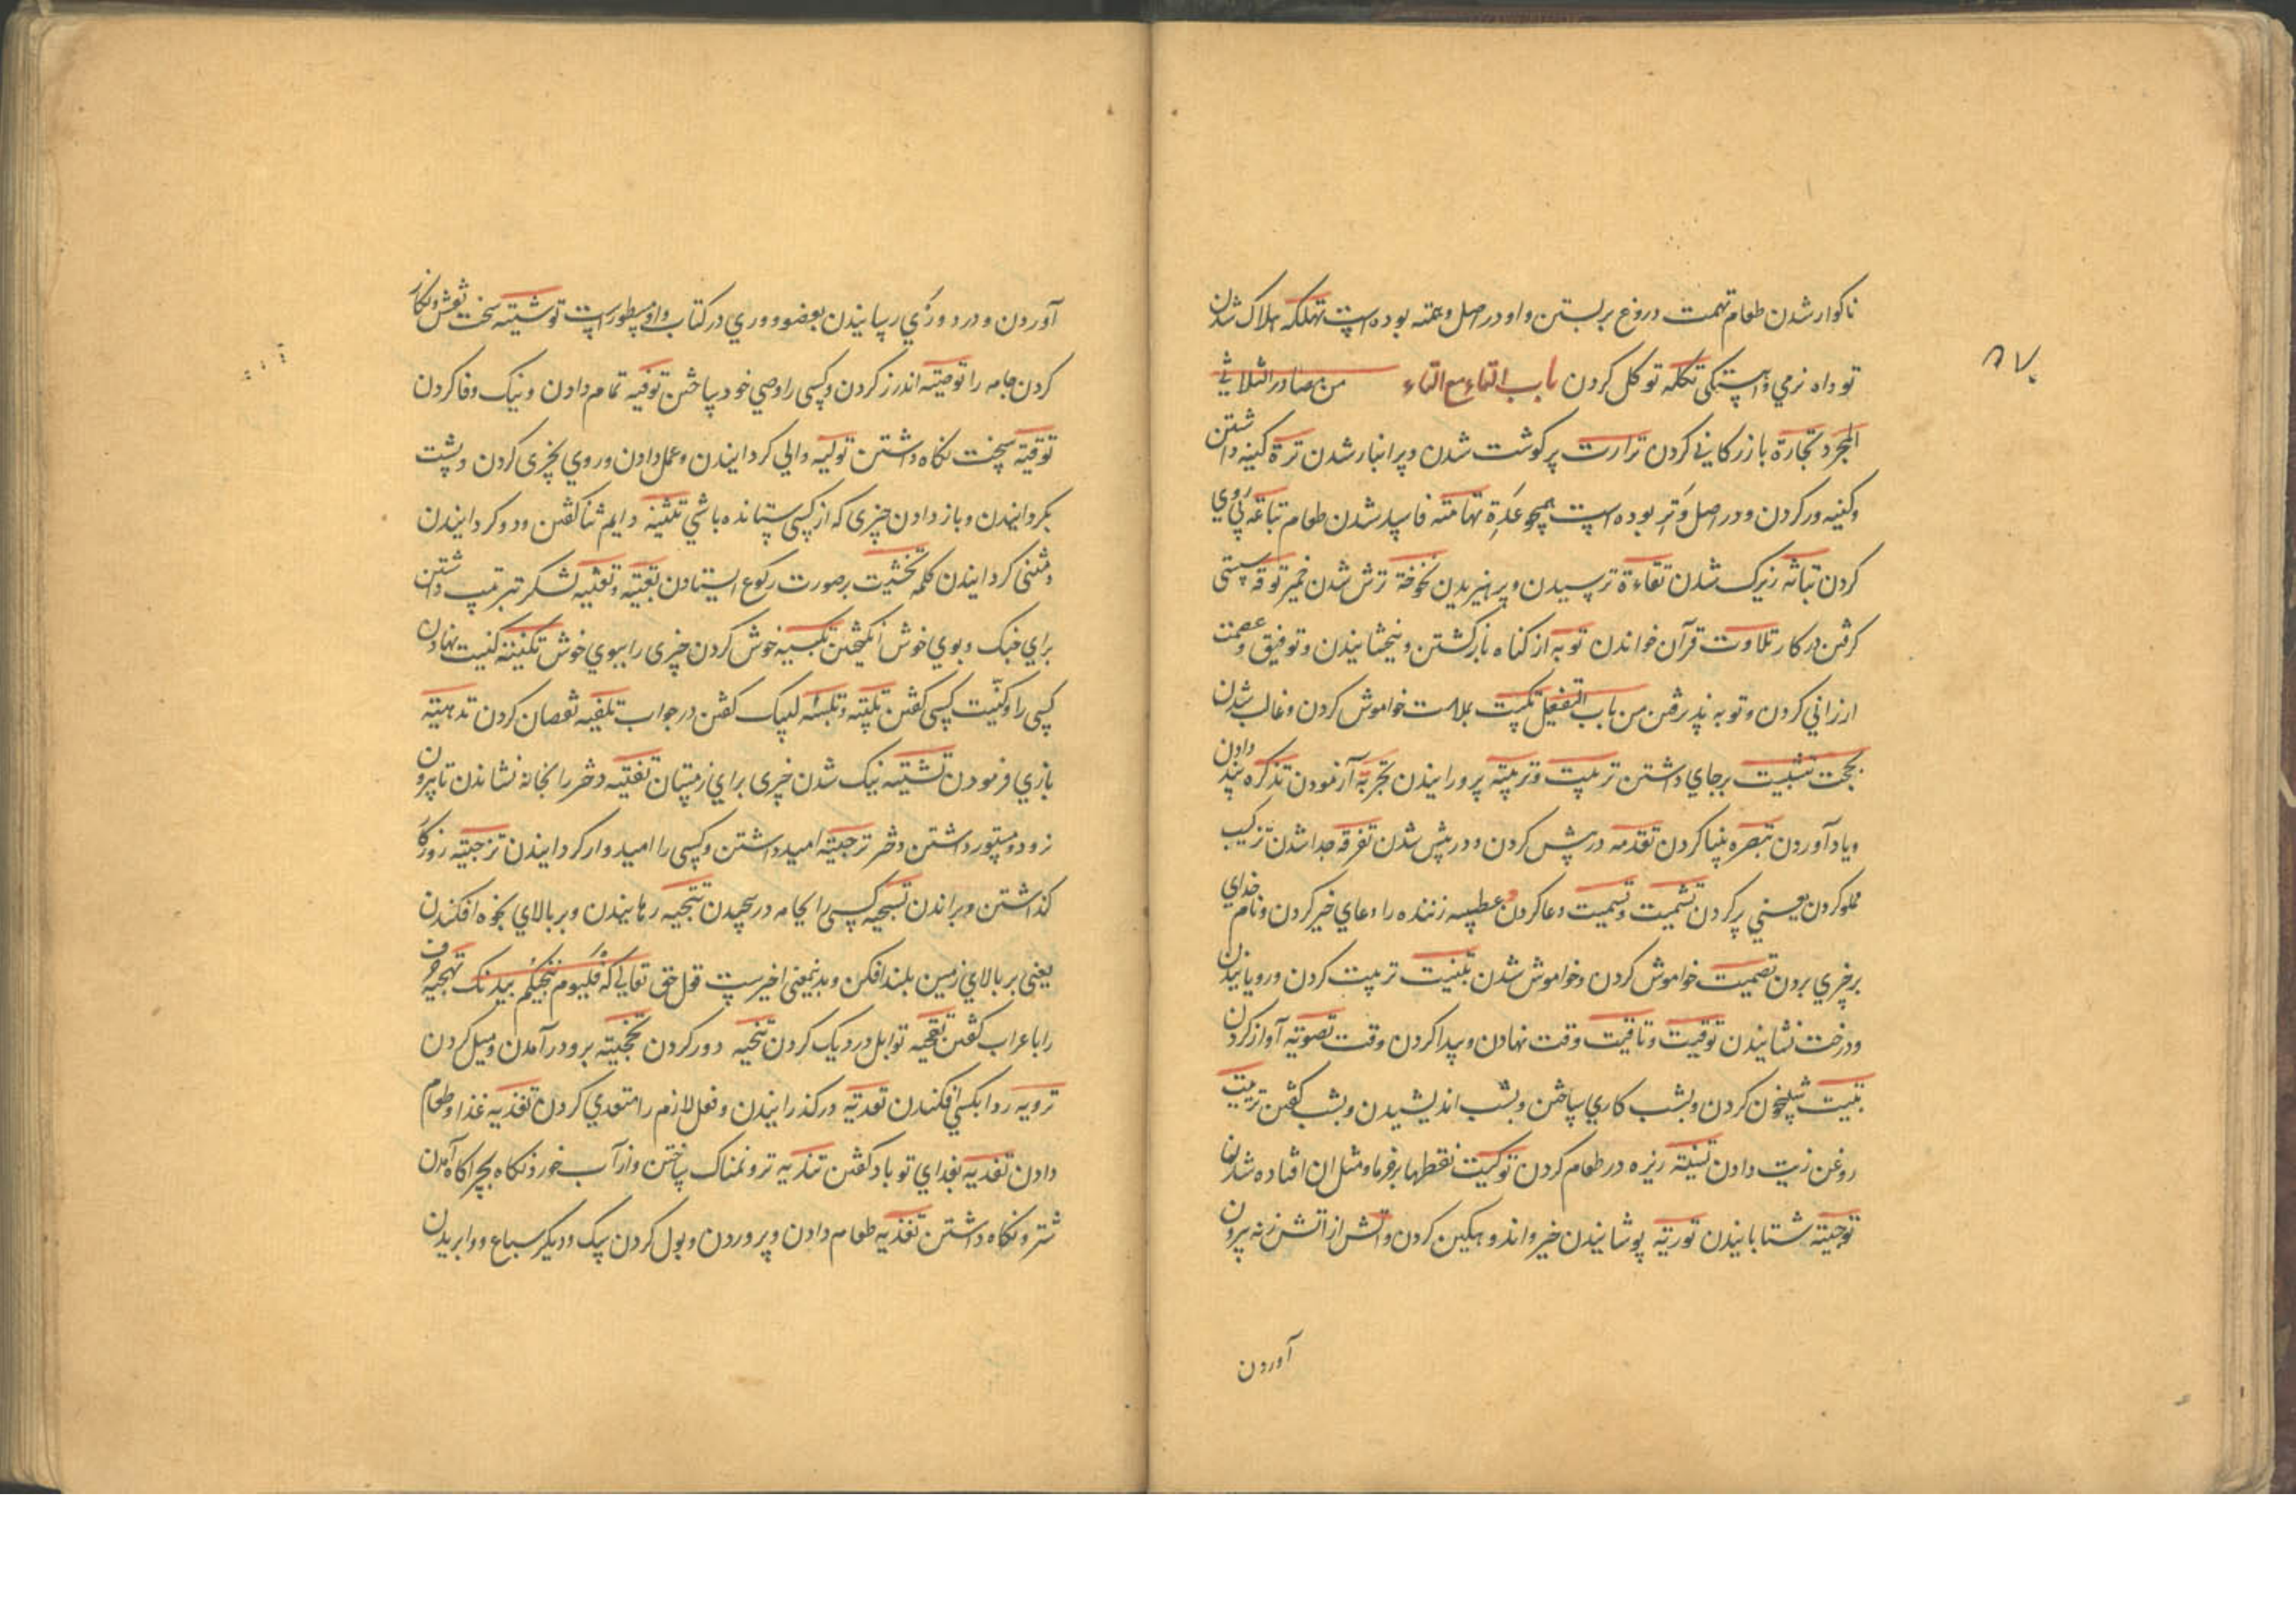 ناکوار شدن طعام تهمت دروغ بر بستن و او در اصل وهمه بوده است تهلکه هلاک شدن
توداه نرمي و آهستکی تکله توکل کردن باب التاء مع التاء من مصادر الثلاثي
المجرد تجارة بازرکاني کردن ترارت پر کوشت شدن و پر انبار شدن ترة کینه داشتن
و کینه ور کردن و در اصل وتر بوده است همچو عدة تهامته فاسد شدن طعام تباعه پی روي
کردن تبانه زیرک شدن تقاءة ترسیدن و پرهیزیدن نخوخة ترش شدن خمیر توقه سستی
کرفتن در کار تلاوت قرآن خواندن توبه از کناه بازکشتن و بخشانیدن و توفیق و عصمت
ارزاني کردن و توبه پذیرفتن من باب التفعیل تبکیت بملامت خواموش کردن و غالب شدن
بحجت تثبیت برجاي داشتن تربیت و تربیته پرورانیدن تجربه آزمودن تذکره پند دادن
و یاد آوردن تبصره بینا کردن تقدمه در پیش کردن و در پیش شدن تفرقه جدا شدن ترکیب
مملو کردن یعني پر کردن تشمیت و تسمیت دعا کردن عطسه زننده را دعاي خیر کردن و نام خداي
بر چیزي بردن تصمیت خواموش کردن و خواموش شدن تنبیت تربیت کردن و رویانیدن
و درخت نشانیدن توقیت و تاقیت وقت نهادن و پیدا کردن وقت تصویته آواز کردن
تبییت شبیخون کردن و بشب کاري ساختن و بشب اندیشیدن و بشب کفتن تزییت
روغن زیت دادن تسنیته زیره در طعام کردن توکیت نقطها بر خرما و مثل ان افتاده شدن
توحیته شتابانیدن توریته پوشانیدن خبر و اندوهکین کردن و آتش از آتش زنه بیرون
آوردن
آوردن و درد و رکي رسانیدن بعضو و وري در کتاب وافر مسطور است توشیته سخت نقش و نکار
کردن جامه را توصیته اندرز کردن و کسی را وصي خود ساختن توفیه تمام دادن و نیک وفا کردن
توقیته سخت نکاه داشتن تولیه والي کردانیدن و عمل دادن و روي بچیزی کردن و پشت
بکردانیدن و باز دادن چیزی که از کسی ستانده باشي تثنیه دایم ثنا کفتن و دو کردانیدن
و مثنی کردانیدن کلمه تحنیت بر صورت رکوع ایستادن تعبیته و تعبیه لشکر بترتیب داشتن
براي جنک و بوي خوش انکیختن تکبیه خوش کردن چیزی را ببوي خوش تکنیته کنیت نهادن
کسی را و کنیت کسی کفتن تلبیته و تلبیه لبیک کفتن در جواب تلفیه نقصان کردن تلهیته
بازي فرمودن تشتیته نیک شدن چیزی براي زمستان تفتیه دختر را بخانه نشاندن تا بیرون
نرود و مستور داشتن دختر ترجیته امید داشتن و کسی را امیدوار کردانیدن تزجیته روزکار
کذاشتن و براندن تسجیه کسی را بجامه در پیچیدن تنجیه رهانیدن و بر بالاي بخوه افکندن
یعنی بر بالاي زمین بلند افکن و بدین معنی اخیر ست قول حق تعالي که فالیوم ننجیک ببدنک تهجیه حرف
را با عراب کفتن تقحیه توابل در دیک کردن تنحیه دور کردن تجخیته برو در آمدن و میل کردن
ترویه ردا بکسي افکندن تعدیه در کذرانیدن و فعل لازم را متعدي کردن تغذیه غذا و طعام
دادن تفدیه بفداي تو باد کفتن تندیه تر و نمناک ساختن و از آب خورد نکاه بچراکاه آمدن
شتر و نکاه داشتن تغذیه طعام دادن و پروردن و بول کردن سک و دیکر سباع و وا بریدن